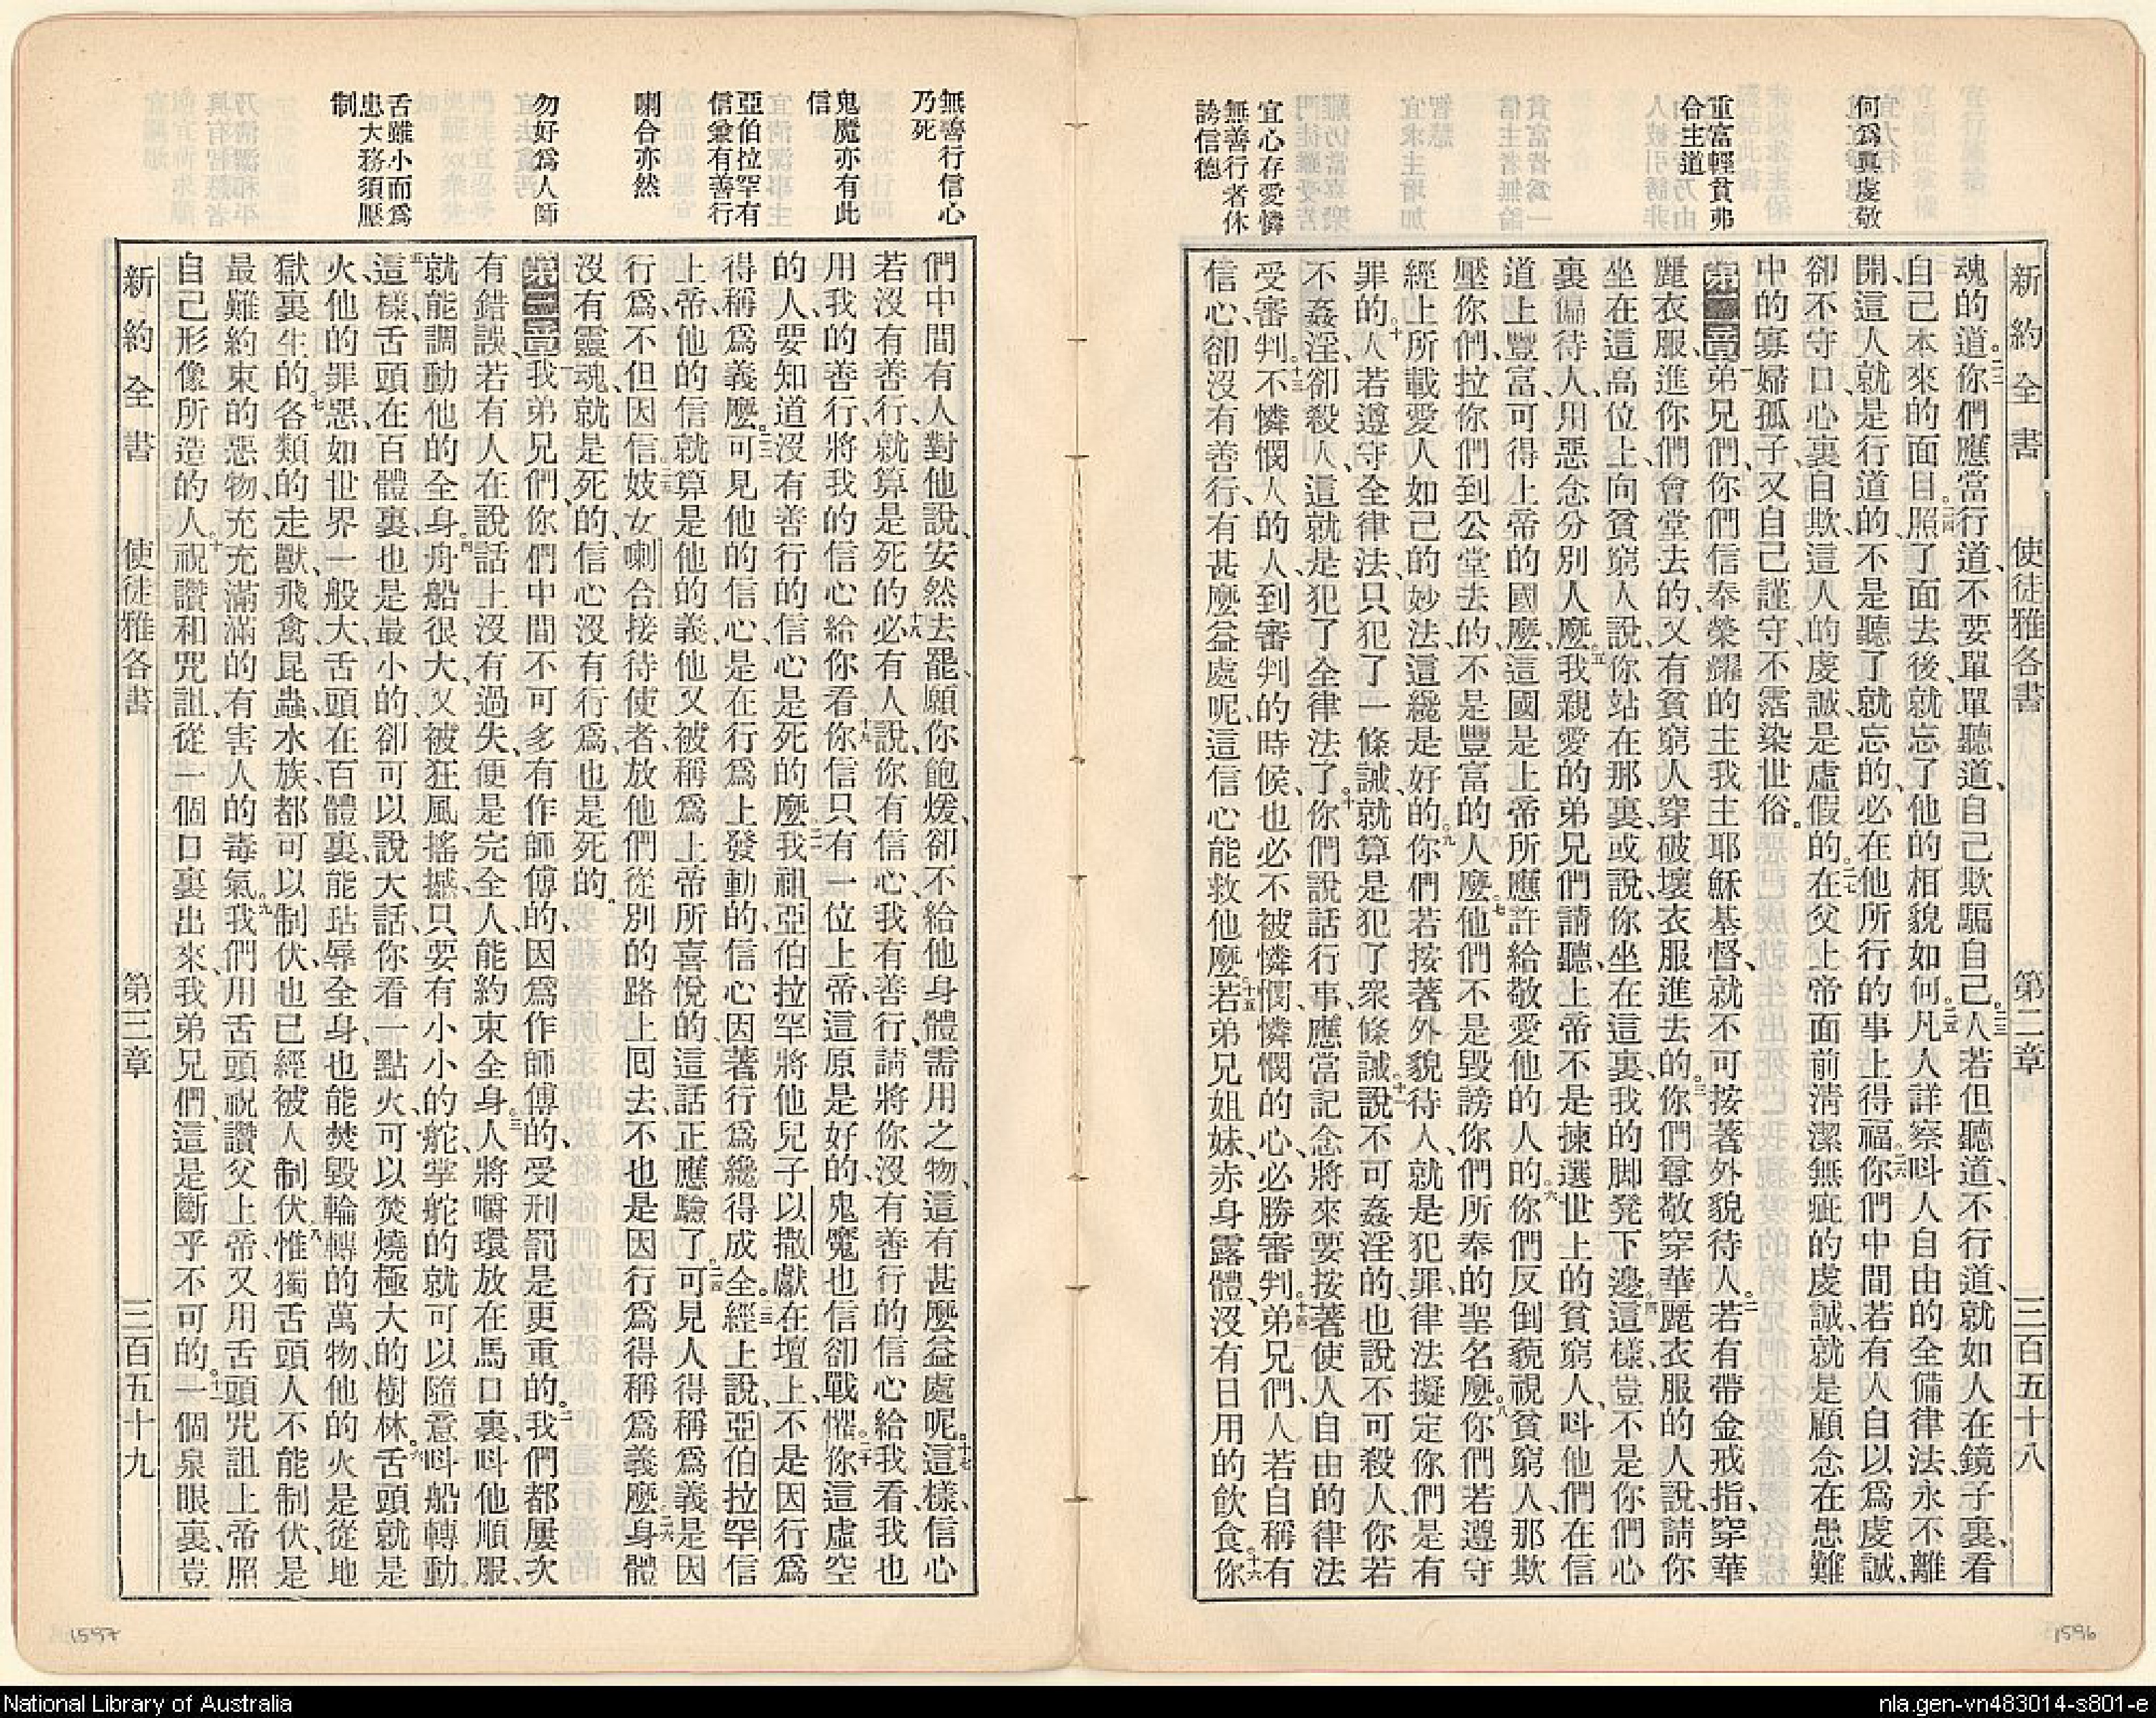 何爲眞虔敬
重富輕貧弗
合主道
宜心存愛憐
無善行者休
誇信德
新約全書 使徒雅各書 第二章 三百五十八
魂的道。二二你們應當行道、不要單單聽道、自己欺騙自己。二三人若但聽道、不行道、就如人在鏡子裏、看
自己本來的面目。二四照了面去後、就忘了他的相貌如何。二五凡人詳察呌人自由的全備律法、永不離
開、這人就是行道的、不是聽了就忘的、必在他所行的事上得福。二六你們中間若有人自以爲虔誠、
卻不守口、心裏自欺、這人的虔誠、是虛假的。二七在父上帝面前淸潔無疵的虔誠、就是顧念在患難
中的寡婦孤子、又自己謹守、不霑染世俗。
第二章 一弟兄們、你們信奉榮耀的主我主耶穌基督、就不可按著外貌待人。二若有帶金戒指、穿華
麗衣服、進你們會堂去的、又有貧窮人穿破壞衣服進去的。三你們尊敬穿華麗衣服的人說、請你
坐在這高位上、向貧窮人說、你站在那裏、或說、你坐在這裏我的脚凳下邊。四這樣、豈不是你們心
裏偏待人、用惡念分別人麽。五我親愛的弟兄們請聽、上帝不是揀選世上的貧窮人、呌他們在信
道上豐富、可得上帝的國麽、這國是上帝所應許給敬愛他的人的。六你們反倒藐視貧窮人、那欺
壓你們、拉你們到公堂去的、不是豐富的人麽。七他們不是毀謗你們所奉的聖名麽。八你們若遵守
經上所載愛人如己的妙法、這纔是好的。九你們若按著外貌待人、就是犯罪、律法擬定你們是有
罪的。十人若遵守全律法、只犯了一條誡、就算是犯了衆條誡。十一說不可姦淫的、也說不可殺人、你若
不姦淫、卻殺人、這就是犯了全律法了。十二你們說話行事、應當記念將來要按著使人自由的律法
受審判。十三不憐憫人的人、到審判的時候、也必不被憐憫、憐憫的心、必勝審判。十四弟兄們、人若自稱有
信心、卻沒有善行、有甚麽益處呢、這信心能救他麽。十五若弟兄姐妹、赤身露體、沒有日用的飮食。十六你
無善行信心
乃死
鬼魔亦有此
信
亞伯拉罕有
信兼有善行
喇合亦然
勿好爲人師
舌雖小而爲
患大務須壓
制
們中間有人對他說、安然去罷、願你飽煖、卻不給他身體需用之物、這有甚麽益處呢。十七這樣、信心
若沒有善行、就算是死的。十八必有人說、你有信心、我有善行、請將你沒有善行的信心給我看、我也
用我的善行、將我的信心給你看。十九你信只有一位上帝、這原是好的、鬼魔也信、卻戰懼。二十你這虛空
的人、要知道沒有善行的信心是死的麽。二一我祖亞伯拉罕將他兒子以撒獻在壇上、不是因行爲
得稱爲義麽。二二可見他的信心、是在行爲上發動的、信心因著行爲纔得成全。二三經上說、亞伯拉罕信
上帝、他的信就算是他的義、他又被稱爲上帝所喜悅的、這話正應驗了。二四可見人得稱爲義、是因
行爲、不但因信。二五妓女喇合接待使者、放他們從別的路上囘去、不也是因行爲得稱爲義麽。二六身體
沒有靈魂、就是死的、信心沒有行爲、也是死的。
第三章 一我弟兄們、你們中間不可多有作師傅的、因爲作師傅的、受刑罰是更重的。二我們都屢次
有錯誤、若有人在說話上沒有過失、便是完全人、能約束全身。三人將嚼環放在馬口裏、呌他順服、
就能調動他的全身。四舟船很大、又被狂風搖撼、只要有小小的舵、掌舵的就可以隨意呌船轉動。
五這樣、舌頭在百體裏、也是最小的、卻可以說大話、你看一點火、可以焚燒極大的樹林。六舌頭就是
火、他的罪惡、如世界一般大、舌頭在百體裏、能玷辱全身、也能焚毀輪轉的萬物、他的火是從地
獄裏生的。七各類的走獸、飛禽、昆蟲、水族、都可以制伏、也已經被人制伏。八惟獨舌頭、人不能制伏、是
最難約束的惡物、充充滿滿的有害人的毒氣。九我們用舌頭祝讚父上帝、又用舌頭咒詛上帝照
自己形像所造的人。十祝讚和咒詛、從一個口裏出來、我弟兄們、這是斷乎不可的。十一一個泉眼裏、豈
新約全書 使徒雅各書 第三章 三百五十九
1597
1596
National Library of Australia
nla.gen-vn483014-s801-e